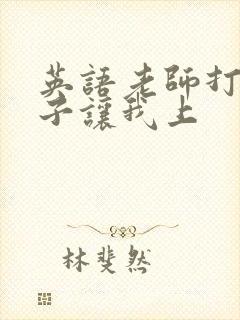 英語老師打
子讓我上
林斐然